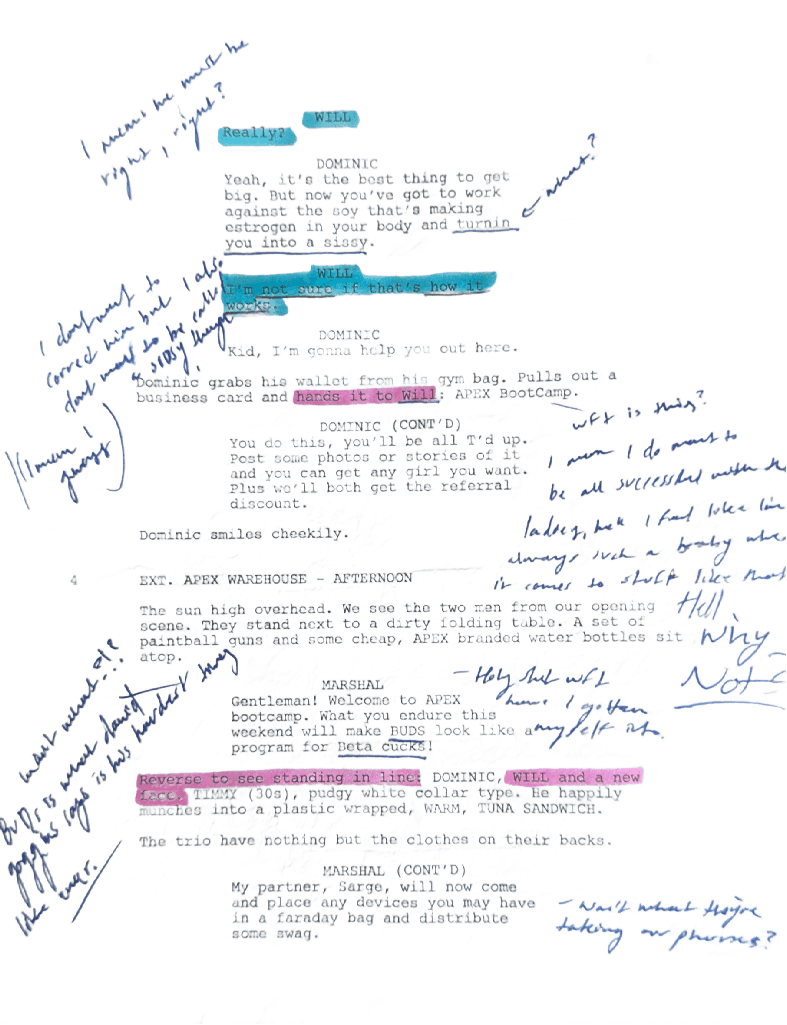 I mean he must be
right, right?
WILL
Really?
DOMINIC
Yeah, it's the best thing to get
big. But now you've got to work
against the soy that's making
estrogen in your body and turnin
you into a sissy.
what?
WILL
I'm not sure if that's how it
works.
I don't want to
correct him but I also
don't want to be called
a sissy though
DOMINIC
Kid, I'm gonna help you out here.
Dominic grabs his wallet from his gym bag. Pulls out a
business card and hands it to Will: APEX BootCamp.
(I mean I
guess)
wtf is this?
DOMINIC (CONT'D)
You do this, you'll be all T'd up.
Post some photos or stories of it
and you can get any girl you want.
Plus we'll both get the referral
discount.
I mean I do want to
be all successful with the
ladies, but I feel like I'm
always such a baby when
it comes to stuff like that
Hell
Why
Not?
Dominic smiles cheekily.
4 EXT. APEX WAREHOUSE - AFTERNOON
The sun high overhead. We see the two men from our opening
scene. They stand next to a dirty folding table. A set of
paintball guns and some cheap, APEX branded water bottles sit
atop.
MARSHAL
Gentleman! Welcome to APEX
bootcamp. What you endure this
weekend will make BUDS look like a
program for Beta cucks!
- Holy shit wtf
have I gotten
myself into.
wait what!?
BUDs is what david
goggins says is his hardest thing
like ever.
Reverse to see standing in line: DOMINIC, WILL and a new
face. TIMMY (30s), pudgy white collar type. He happily
munches into a plastic wrapped, WARM, TUNA SANDWICH.
The trio have nothing but the clothes on their backs.
MARSHAL (CONT'D)
My partner, Sarge, will now come
and place any devices you may have
in a faraday bag and distribute
some swag.
- Wait what they're
taking our phones?